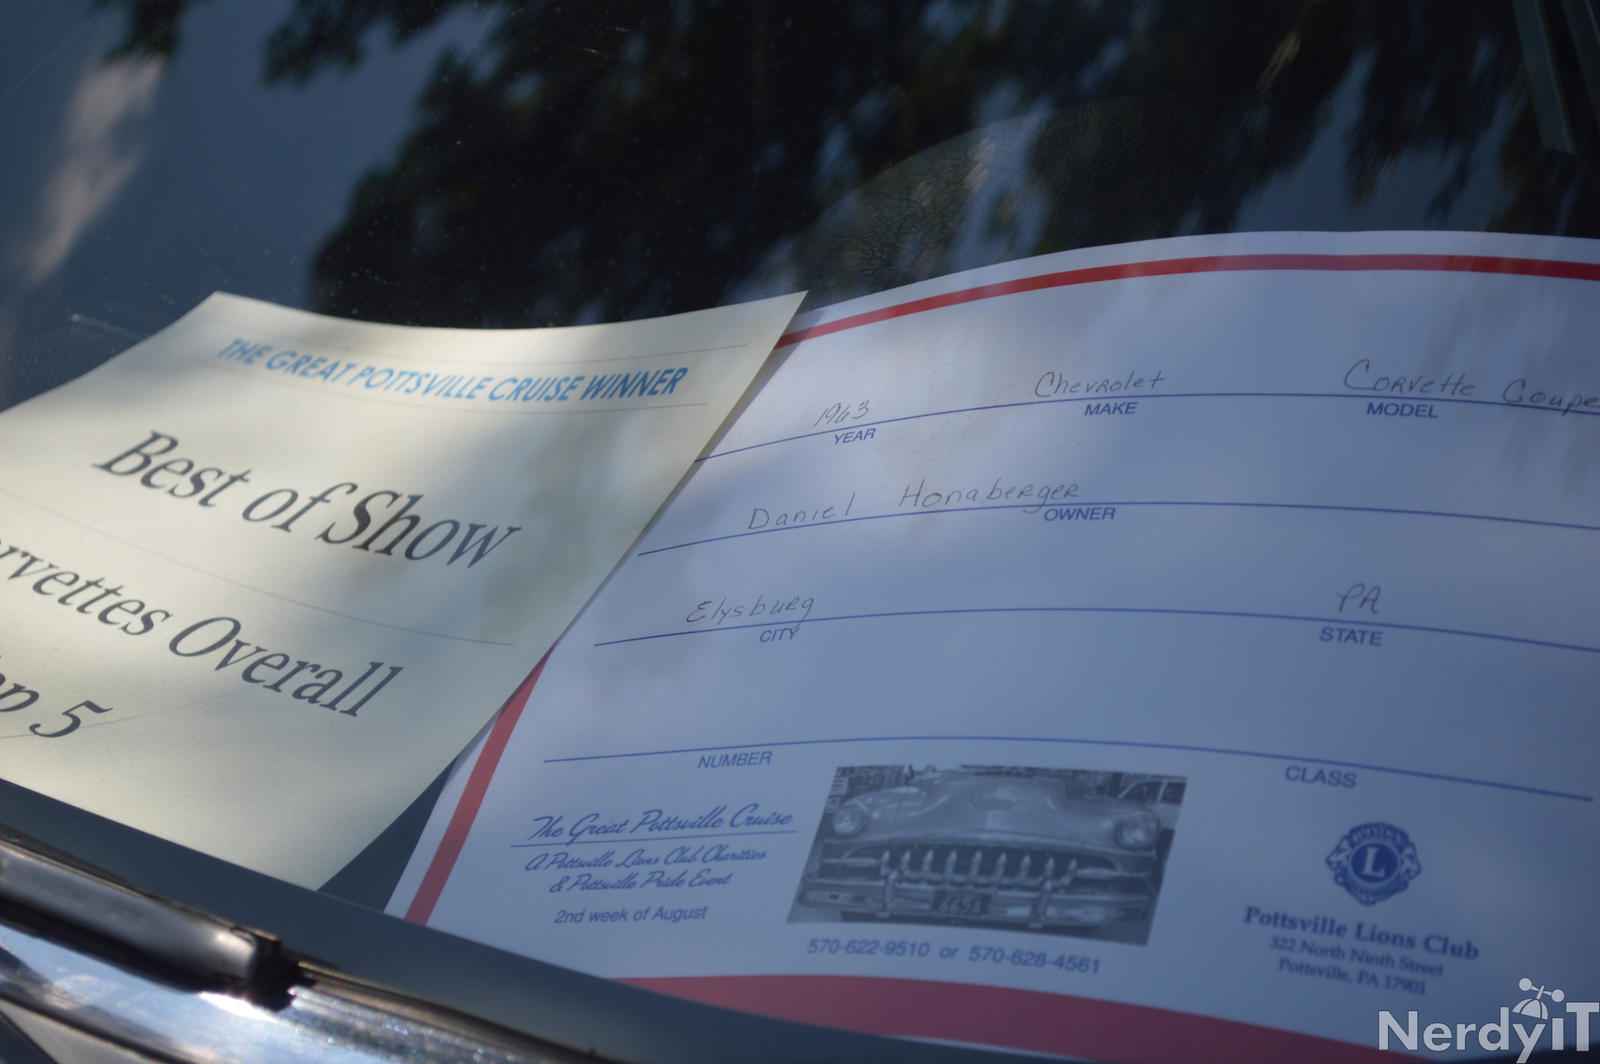 THE GREAT POTTSVILLE CRUISE WINNER
Best of Show
rvettes Overall
p 5
1963 Chevrolet Corvette Coupe
YEAR MAKE MODEL
Daniel Honaberger
OWNER
Elysburg PA
CITY STATE
NUMBER CLASS
The Great Pottsville Cruise
A Pottsville Lions Club Charities
& Pottsville Pride Event
2nd week of August
665A
570-622-9510 or 570-628-4561
L
Pottsville Lions Club
322 North Ninth Street
Pottsville, PA 17901
NerdyiT